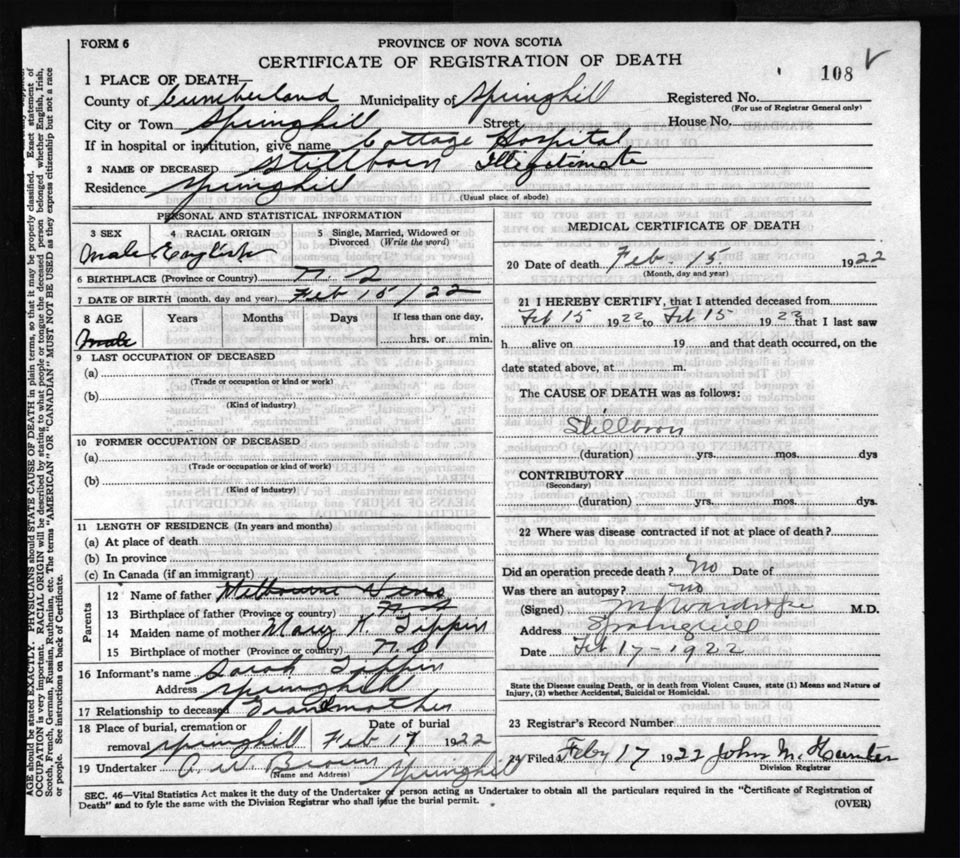 FORM 6
PROVINCE OF NOVA SCOTIA
CERTIFICATE OF REGISTRATION OF DEATH
108
1 PLACE OF DEATH—
County of Cumberland Municipality of Springhill Registered No.
(For use of Registrar General only)
City or Town Springhill Street House No.
If in hospital or institution, give name Cottage Hospital
2 NAME OF DECEASED Stillborn Illegitimate
Residence Springhill
(Usual place of abode)
PERSONAL AND STATISTICAL INFORMATION
3 SEX 4 RACIAL ORIGIN 5 Single, Married, Widowed or Divorced (Write the word)
Male English
6 BIRTHPLACE (Province or Country) N. S
7 DATE OF BIRTH (month, day and year) Feb 15/22
8 AGE Years Months Days If less than one day,
Male hrs. or min.
9 LAST OCCUPATION OF DECEASED
(a)
(Trade or occupation or kind or work)
(b)
(Kind of industry)
10 FORMER OCCUPATION OF DECEASED
(a)
(Trade or occupation or kind of work)
(b)
(Kind of industry)
11 LENGTH OF RESIDENCE (In years and months)
(a) At place of death
(b) In province
(c) In Canada (if an immigrant)
Parents
12 Name of father Melbourne
13 Birthplace of father (Province or country) N. S
14 Maiden name of mother Mary K. Tippin
15 Birthplace of mother (Province or country) N. S
16 Informant's name Sarah Tippin
Address Springhill
17 Relationship to deceased Grandmother
18 Place of burial, cremation or removal Springhill Date of burial Feb 17 1922
19 Undertaker A. W. Brown Springhill
(Name and Address)
MEDICAL CERTIFICATE OF DEATH
20 Date of death Feb. 15. 1922
(Month, day and year)
21 I HEREBY CERTIFY, that I attended deceased from
Feb 15 1922 to Feb 15 1922 that I last saw
h alive on 19 and that death occurred, on
date stated above, at m.
The CAUSE OF DEATH was as follows:
Stillborn
(duration) yrs. mos. dys
CONTRIBUTORY
(Secondary)
(duration) yrs. mos. dys.
22 Where was disease contracted if not at place of death?
Did an operation precede death? No Date of
Was there an autopsy? no
(Signed) M.D.
Address Springhill
Date Feb 17-1922
State the Disease causing Death, or in death from Violent Causes, state (1) Means and Nature of
Injury, (2) whether Accidental, Suicidal or Homicidal.
23 Registrar's Record Number
24 Filed Feby 17 1922 John M. Hunter
Division Registrar
SEC. 46—Vital Statistics Act makes it the duty of the Undertaker or person acting as Undertaker to obtain all the particulars required in the "Certificate of Registration of
Death" and to fyle the same with the Division Registrar who shall issue the burial permit.
(OVER)
AGE should be stated EXACTLY. PHYSICIANS should STATE CAUSE OF DEATH in plain terms, so that it may be properly classified. Exact statement of
OCCUPATION is very important. RACIAL ORIGIN will be described by stating to what people or tongue the deceased person belonged whether English, Irish,
Scotch, French, German, Russian, Ruthenian, etc. The terms "AMERICAN" OR "CANADIAN" MUST NOT BE USED as they express citizenship but not a race
or people. See instructions on back of Certificate.